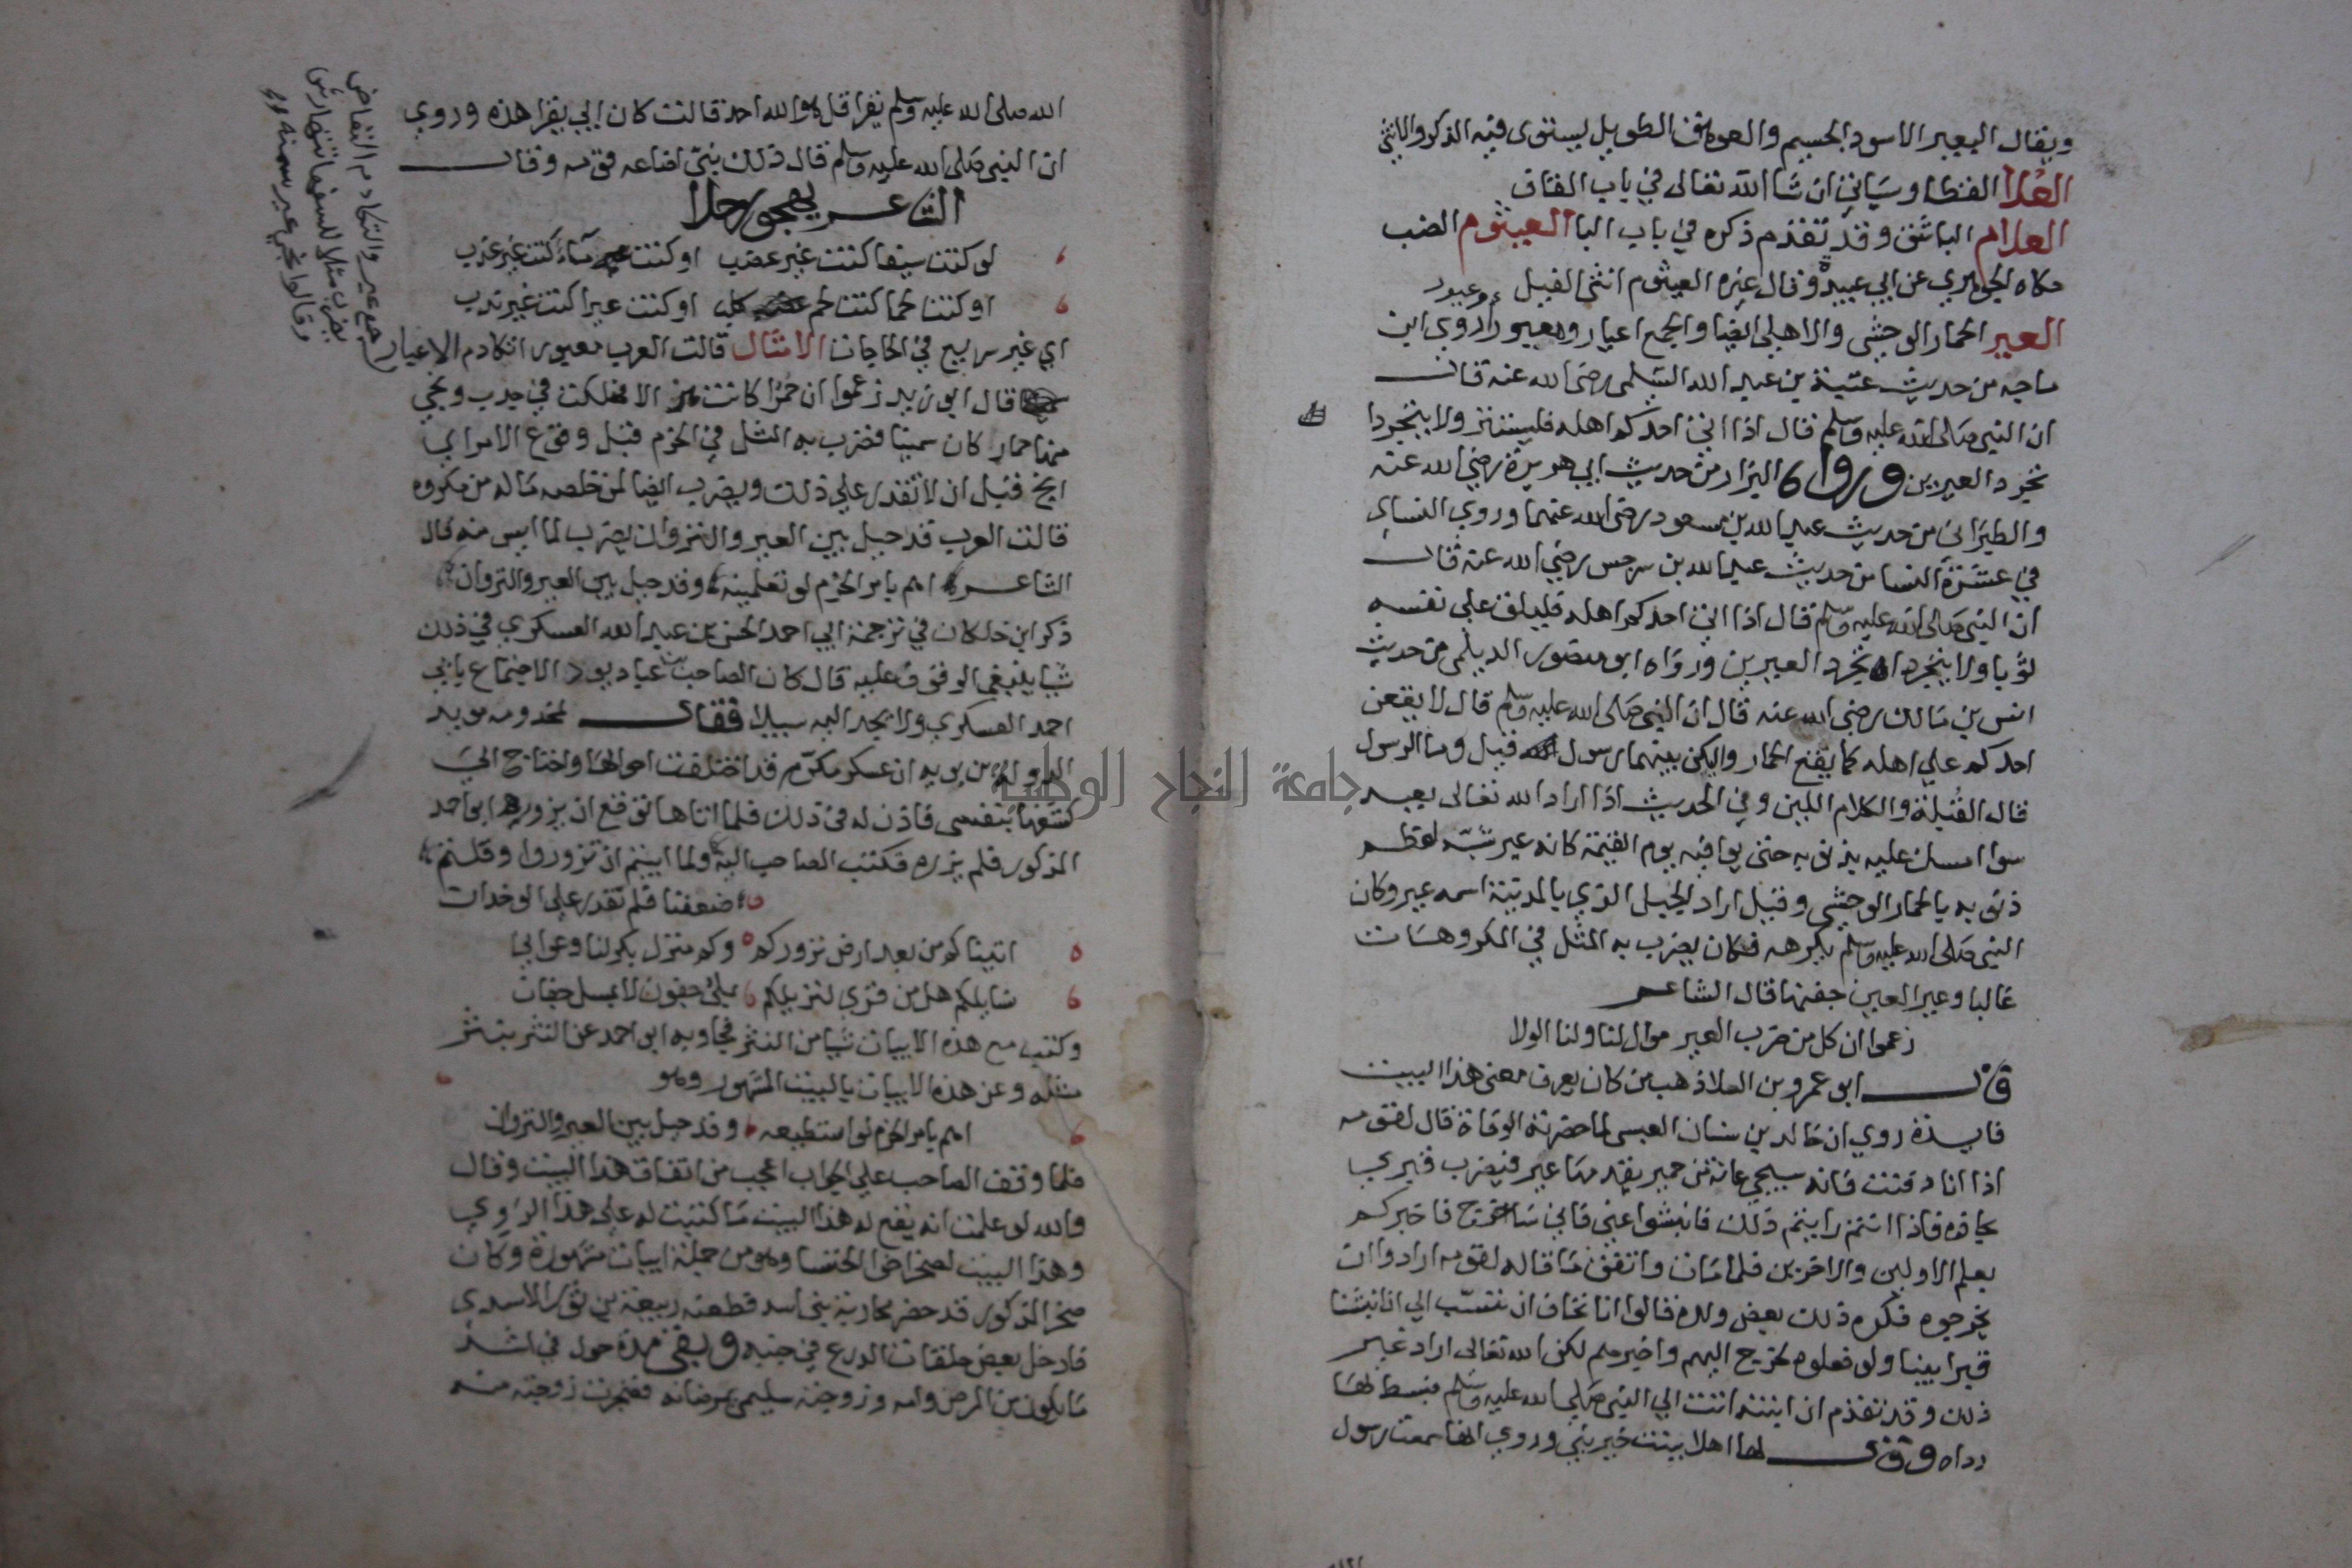 ويقال البعير الاسود الجسيم والعوهق الطويل يستوى فيه الذكر والانثي
العلا القنطا وسياتي ان شا الله تعالى في باب القاف
العلام الباشق وقد تقدم ذكره في باب البا العيثوم الضب
حكاه الجوهري عن ابي عبيدة وقال غيره العيثوم انثى الفيل
وعيود
العير الحمار الوحشي والاهلي ايضا والجمع اعيار ومعيورا روي ابن
ماجه من حديث عتبة بن عبد الله السلمي رضى الله عنه قال
ان النبي صلى الله عليه وسلم قال اذا اتي احدكم اهله فليستتر ولا يتجردا
تجرد العيرين وروا ه البزار من حديث ابي هريرة رضي الله عنه
والطبراني من حديث عبد الله بن مسعود رضى الله عنهما وروي النساي
في عشرة النسا من حديث عبد الله بن سرجس رضي الله عنه قال
ان النبي صلى الله عليه وسلم قال اذا اتى احدكم اهله فليلق على نفسه
ثوبا ولا يتجردا تجرد العيرين ورواه ابو منصور الديلمي من حديث
انس بن مالك رضي الله عنه قال ان النبي صلى الله عليه وسلم قال لا يقعن
احدكم علي اهله كما يقع الحمار وليكن بينهما رسول قيل وما الرسول
قال القبلة والكلام اللين وفي الحديث اذا اراد الله تعالى بعبد
سوا امسك عليه ذنوبه حتى يوافيه يوم القيمة كانه عير شبه لعظم
ذنوبه بالحمار الوحشي وقيل اراد الجبل الذي بالمدينة اسمه عير وكان
النبي صلى الله عليه وسلم يكرهه فكان يضرب به المثل في المكروهات
غالبا وعير العين جفنها قال الشاعر
زعموا ان كل من ضرب العير موال لنا ولنا الولا
قال ابو عمرو بن العلا ذهب من كان يعرف معنى هذا البيت
فايدة روي ان خالد بن سنان العبسي لما حضرته الوفاة قال لقومه
اذا انا دفنت فانه سيجي عانة من حمير يقدمها عير فيضرب قبري
بحافره فاذا انتم رايتم ذلك فانبشوا عني فاني ساخرج فاخبركم
بعلم الاولين والاخرين فلما مات واتفق ما قاله لقومه ارادوا ان
يخرجوه فكره ذلك بعض ولده قالوا انا نخاف ان ننسب الي انا نبشنا
قبر ابينا ولو فعلوه لخرج اليهم واخبرهم لكن الله تعالى اراد غير
ذلك وقد تقدم ان ابنته اتت الي النبي صلي الله عليه وسلم فبسط لها
رداه وقال لها اهلا ببنت خير نبي وروي انها سمعت رسول
الله صلى الله عليه وسلم يقرا قل هو الله احد قالت كان ابي يقرا هذه وروي
ان النبي صلى الله عليه وسلم قال ذلك نبي اضاعه قومه وقال
الشاعر يهجو رجلا
لو كنت سيفا كنت غير عضب او كنت ماء كنت غير عذب
او كنت لحما كنت لحم كلب او كنت عيرا كنت غير ندب
اي غير سريع في الحاجات الامثال قالت العرب معيورا تكادم الاعيار
قال ابو زيد زعموا ان حمرا كانت الا فهلكت في جدب ونجي
منها حمار كان سمينا فضرب به المثل في الحزم قبل وقوع الامر اي
انج قبل ان لا تقدر علي ذلك ويضرب ايضا لمن خلصه ماله من مكروه
قالت العرب قد حيل بين العير والنزوان يضرب لما ايس منه قال
الشاعر اهم بامر الحزم لو تعلمينه وقد حيل بين العير والنزوان
ذكر ابن خلكان في ترجمة ابي احمد الحسن بن عبد الله العسكري في ذلك
شيا ينبغي الوقوف عليه قال كان الصاحب بن عباد يود الاجتماع بابي
احمد العسكري ولا يجد اليه سبيلا فقال لمخدومه مويد
الدولة بن بويه ان عسكر مكرم قد اختلفت احوالها واحتاج الي
كشفها بنفسي فاذن له في ذلك فلما اتاها توقع ان يزوره ابو احمد
المذكور فلم يزره فكتب الصاحب اليه ولما ابيتم ان تزوروا وقلتم
ضعفنا فلم نقدر علي الوخدات
اتيناكم من بعد ارض نزوركم وكم منزل بكر لنا وعوان
نسايلكم هل من قري لنزيلكم بملئ جفون لا بمل جفان
وكتب مع هذه الابيات شيا من النثر فجاوبه ابو احمد عن النثر بنثر
مثله وعن هذه الابيات بالبيت المشهور وهو
اهم بامر الحزم لو استطيعه وقد حيل بين العير والنزوان
فلما وقف الصاحب علي الجواب اعجب من اتفاق هذا البيت وقال
والله لو علمت انه يقع له هذا البيت ما كتبت له على هذا الروي
وهذا البيت لصخر اخي الخنسا وهو من جملة ابيات مشهورة وكان
صخر المذكور قد حضر محاربة بني اسد فطعنه ربيعة بن ثور الاسدي
فادخل بعض حلقات الدرع في جنبه وبقي مدة حول في اشد
ما يكون من المرض وامه وزوجته سليمى يمرضانه فضجرت زوجته منه
جمع عير والتكادم التعاض
يضرب مثلا للسفها تتهارش
وقالوا نجي عير سمنه
جامعة النجاح الوطنية